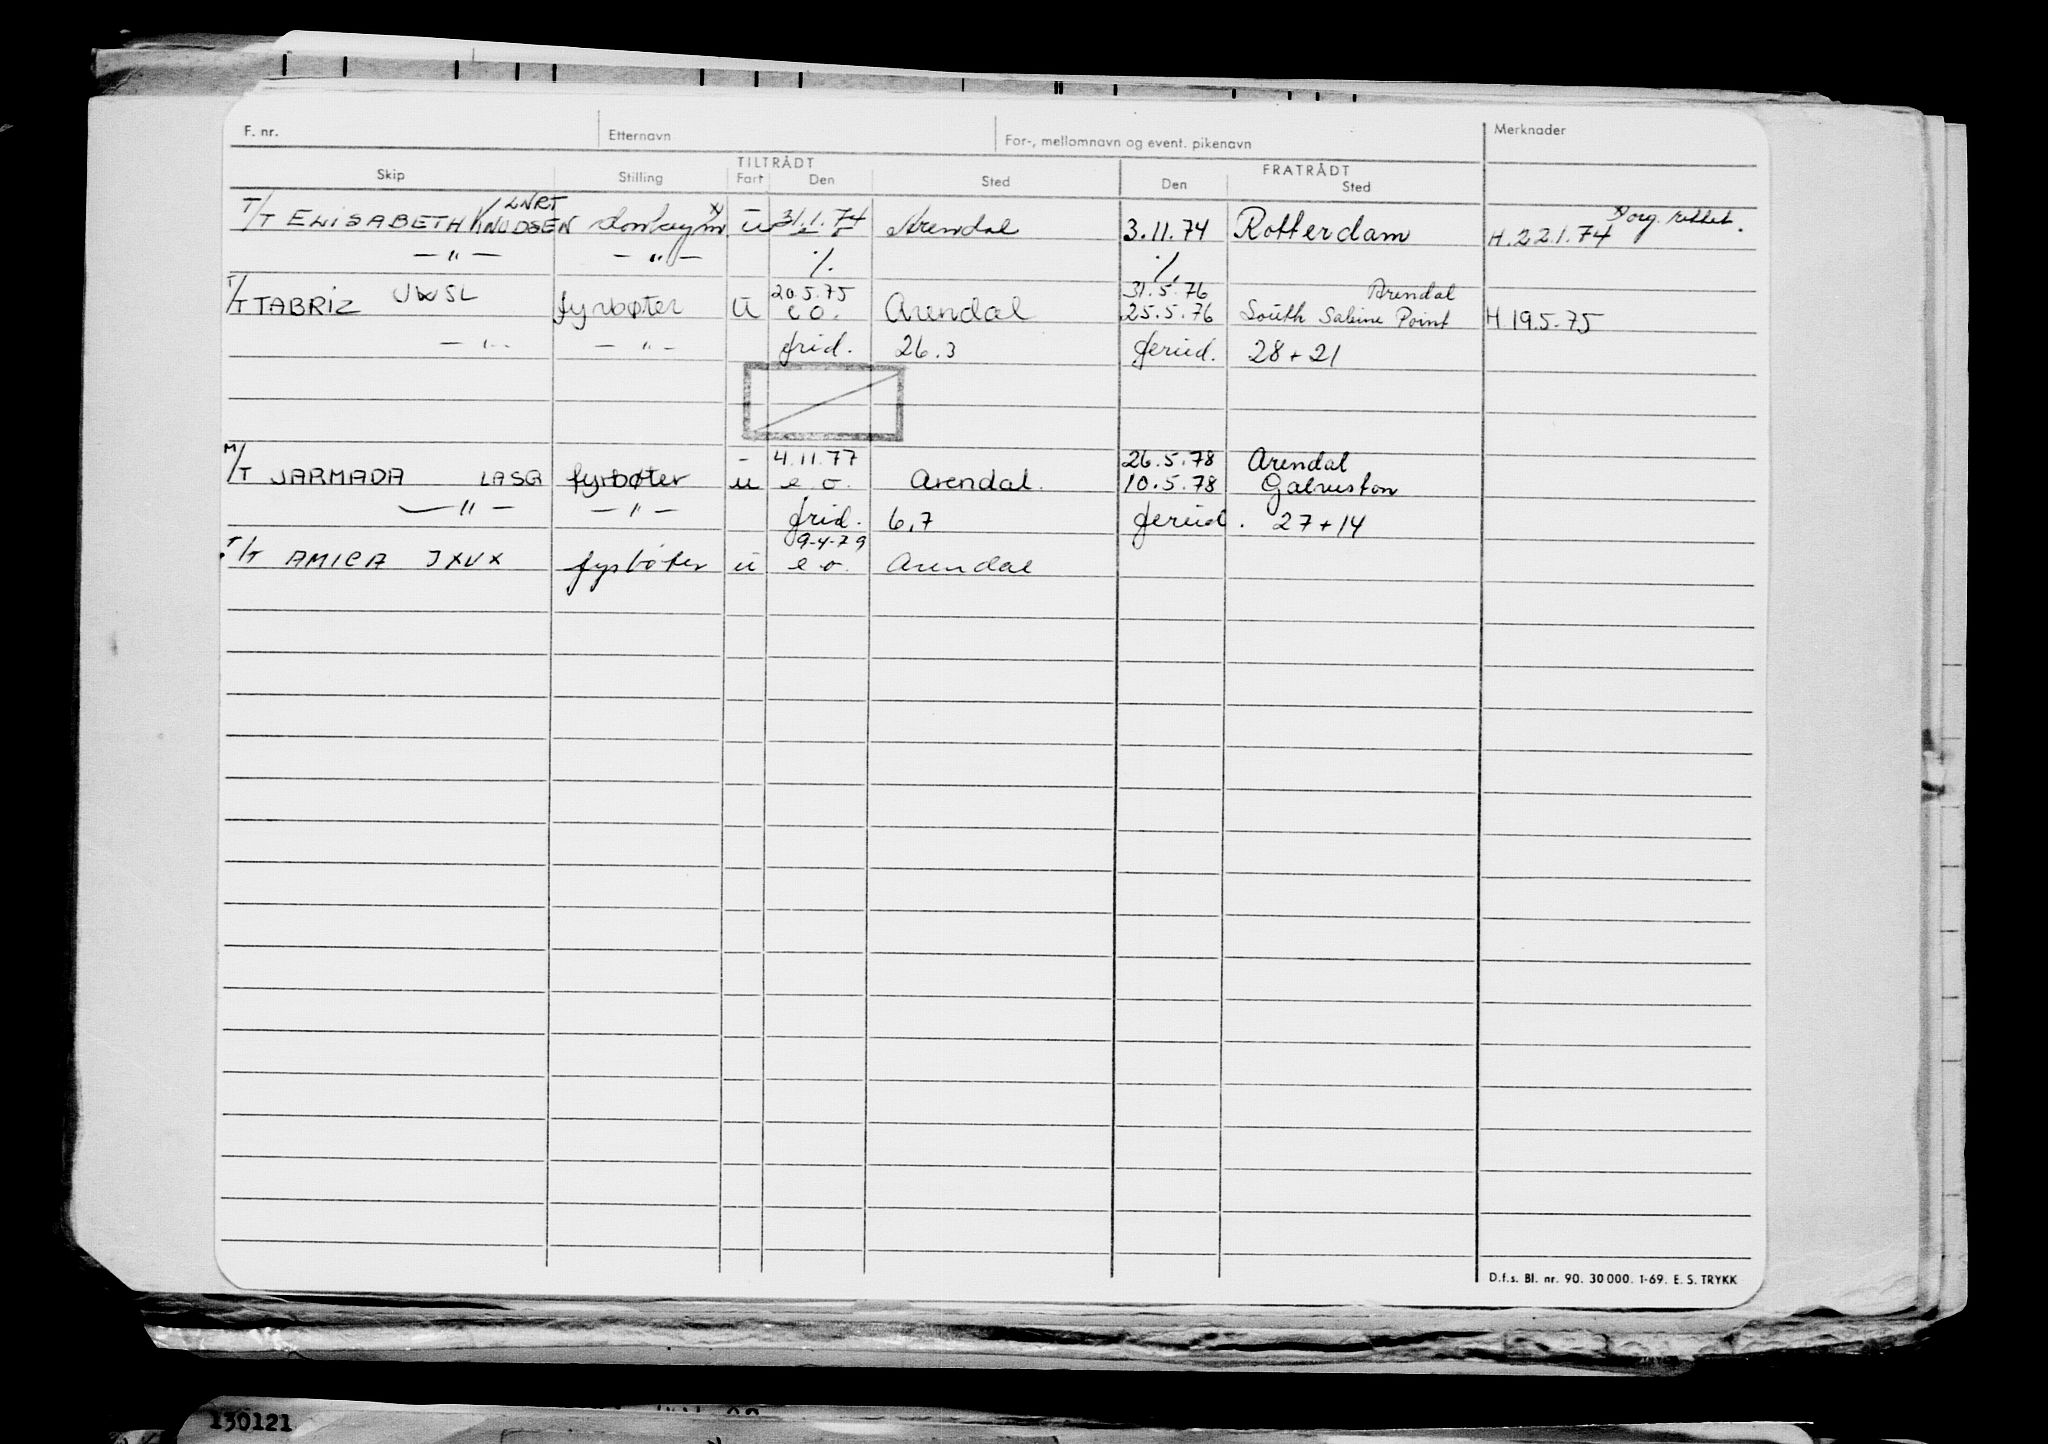 F. nr. Etternavn For-, mellomnavn og event. pikenavn Merknader
TILTRÅDT FRATRÅDT
Skip Stilling Fart Den Sted Den Sted
LNRT x) x) org. rettet.
T/T ELISABETH KNUDSEN ū 31.1.74 Arendal 3.11.74 Rotterdam H.22.1.74
— " — — " — ./. ./.
JWSL 20.5.75 31.5.76 Arendal
T/T TABRIZ fyrbøter ū e o. Arendal 25.5.76 South Sabine Point H 19.5.75
— " — — " — frid. 26.3 feried. 28 + 21
4.11.77 26.5.78 Arendal
M/T JARMADA LASG fyrbøter u e.o. Arendal. 10.5.78 Galveston
— " — — " — frid. 6,7 feried. 27 + 14
9-4-79
T/T AMICA JXVX fyrbøter u e.o. Arendal
D.f.s. Bl. nr. 90. 30 000. 1-69. E. S. TRYKK
130121